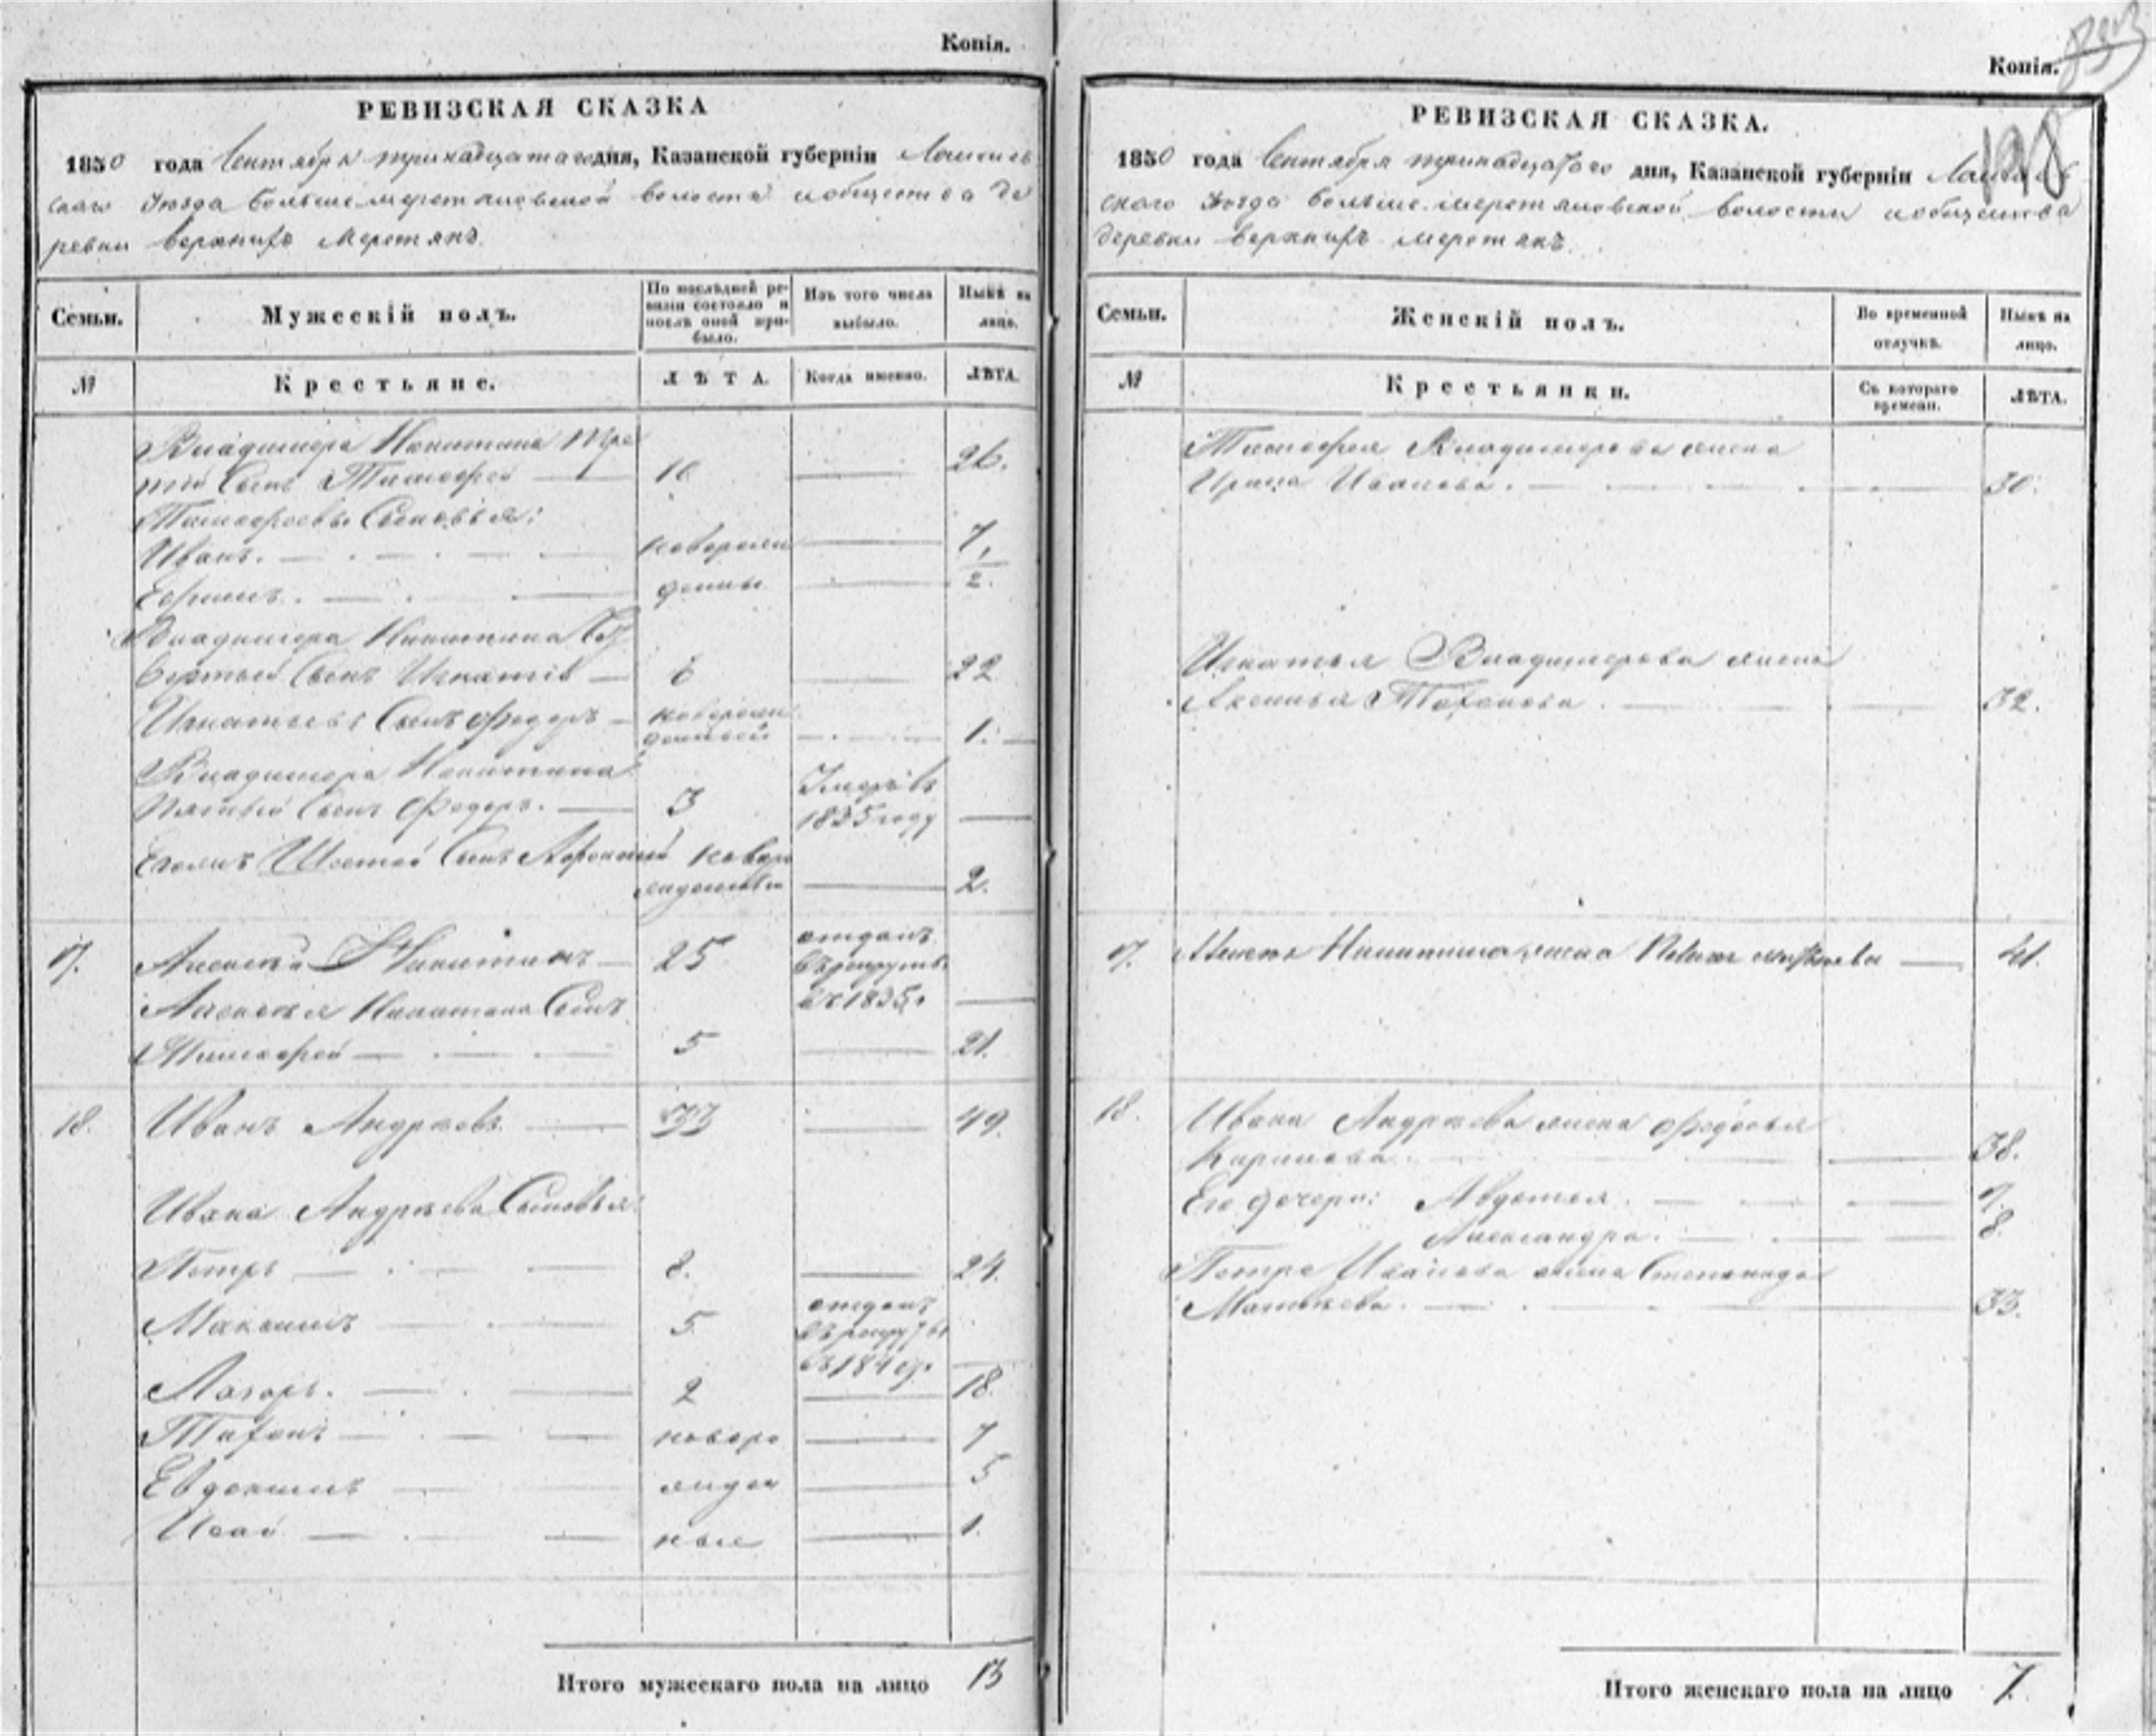 Копія.
РЕВИЗСКАЯ СКАЗКА
1850 года Сентября тринадцатаго дня, Казанской губерніи Лаишев
скаго Уѣзда Большемеретяковской волости и общества де
ревни верхнихъ Меретякъ.
Семьи.
Мужескій полъ.
По послѣдней ре-
визіи состояло и
послѣ оной при-
было.
Изъ того числа
выбыло.
Нынѣ на
лицо.
№
Крестьяне.
ЛѢТА.
Когда именно.
ЛѢТА.
Владимера Никитина тре
тій Сынъ Тимофей 10 26.
Тимофеевы Сыновья:
Иванъ. новорож 7.
Ефимъ. денные 1/2.
Владимера Никитина чет
вертый Сынъ Игнатій 6 22
Игнатьевъ Сынъ Федоръ новорож
денный 1.
Владимера Никитина
Пятый Сынъ Федоръ. 3 Умеръ въ
1835 году
Егожъ Шестой Сынъ новоро
жденный 2.
17. Алексѣй Никитинъ 25 отданъ
въ рекруты
въ 1835.
Алексѣя Никитина Сынъ
Тимофей 5 21.
18. Иванъ Андреевъ 33 49.
Ивана Андреева Сыновья:
Петръ 8. 24.
Максимъ 5 отданъ
въ рекруты
въ 184
Лазарь. 2 18.
Тихонъ новоро 7
Евдокимъ жден 5
Исай ные 1.
Итого мужескаго пола на лицо 13
Копія.
198
РЕВИЗСКАЯ СКАЗКА.
1850 года Сентября тринадцатаго дня, Казанской губерніи Лаишев
скаго Уѣзда Больше-меретяковской волости и общества
деревни верхнихъ меретякъ.
Семьи.
Женскій полъ.
Во временной
отлучкѣ.
Нынѣ на
лицо.
№
Крестьянки.
Съ котораго
времени.
ЛѢТА.
Тимофея Владимерова жена
Ирина Иванова. 30.
Игнатья Владимерова жена
Аксинья Тихонова. 32.
17. Алексѣя Никитина жена 41.
18. Ивана Андреева жена Федосья
Карпова. 38.
Его дочери: Авдотья.
Александра. 8.
Петра Иванова жена Степанида
Матвѣева. 33.
Итого женскаго пола на лицо 7.